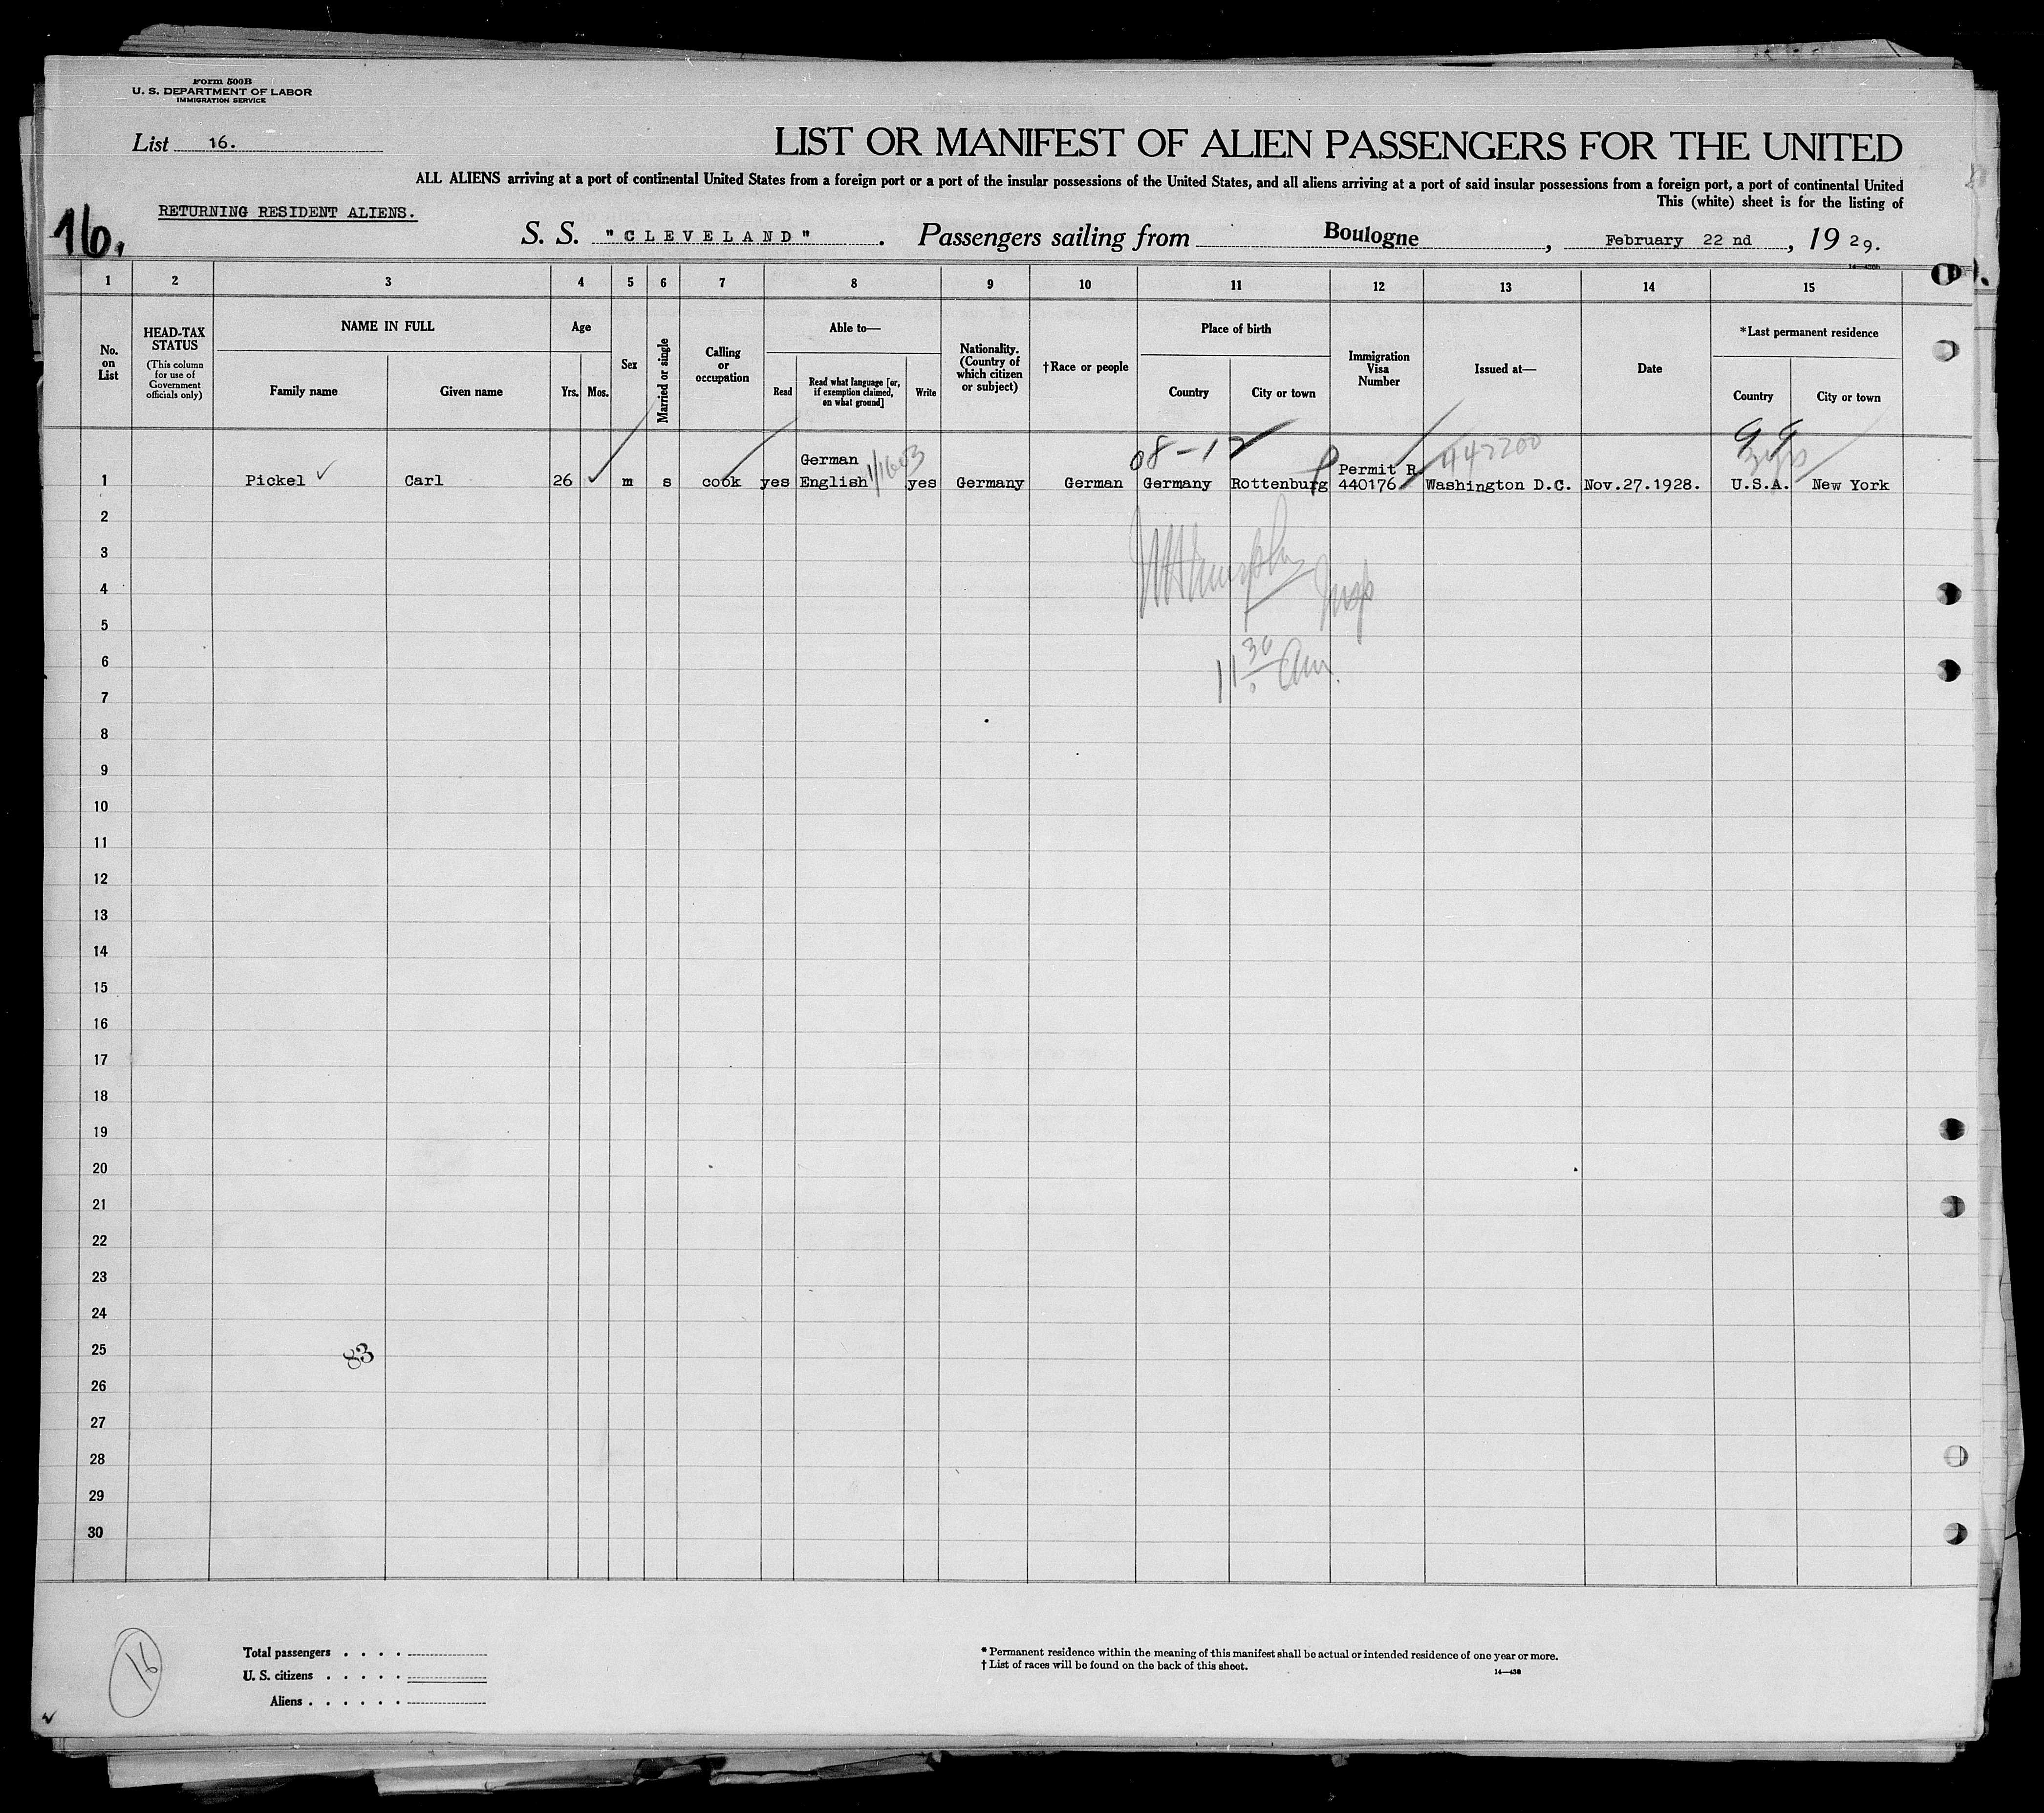 Form 500B
U. S. DEPARTMENT OF LABOR
IMMIGRATION SERVICE
List 16.
LIST OR MANIFEST OF ALIEN PASSENGERS FOR THE UNITED
ALL ALIENS arriving at a port of continental United States from a foreign port or a port of the insular possessions of the United States, and all aliens arriving at a port of said insular possessions from a foreign port, a port of continental United
This (white) sheet is for the listing of
RETURNING RESIDENT ALIENS.
16.
S. S. "CLEVELAND". Passengers sailing from Boulogne, February 22 nd, 19 29.
1 2 3 4 5 6 7 8 9 10 11 12 13 14 15
No. on List
HEAD-TAX STATUS
(This column for use of Government officials only)
NAME IN FULL
Family name
Given name
Age
Yrs.
Mos.
Sex
Married or single
Calling or occupation
Able to—
Read
Read what language [or, if exemption claimed, on what ground]
Write
Nationality. (Country of which citizen or subject)
†Race or people
Place of birth
Country
City or town
Immigration Visa Number
Issued at—
Date
*Last permanent residence
Country
City or town
08-12
447200
German
Permit R
1 Pickel ✓ Carl 26 ✓ m s cook yes English yes Germany German Germany Rottenburg 440176 Washington D.C. Nov.27.1928. U.S.A. New York
2
3
4
5
6
11 30 am
7
8
9
10
11
12
13
14
15
16
17
18
19
20
21
22
23
24
25
83
26
27
28
29
30
16
Total passengers . . . .
U. S. citizens . . . . .
Aliens . . . . . .
* Permanent residence within the meaning of this manifest shall be actual or intended residence of one year or more.
† List of races will be found on the back of this sheet.